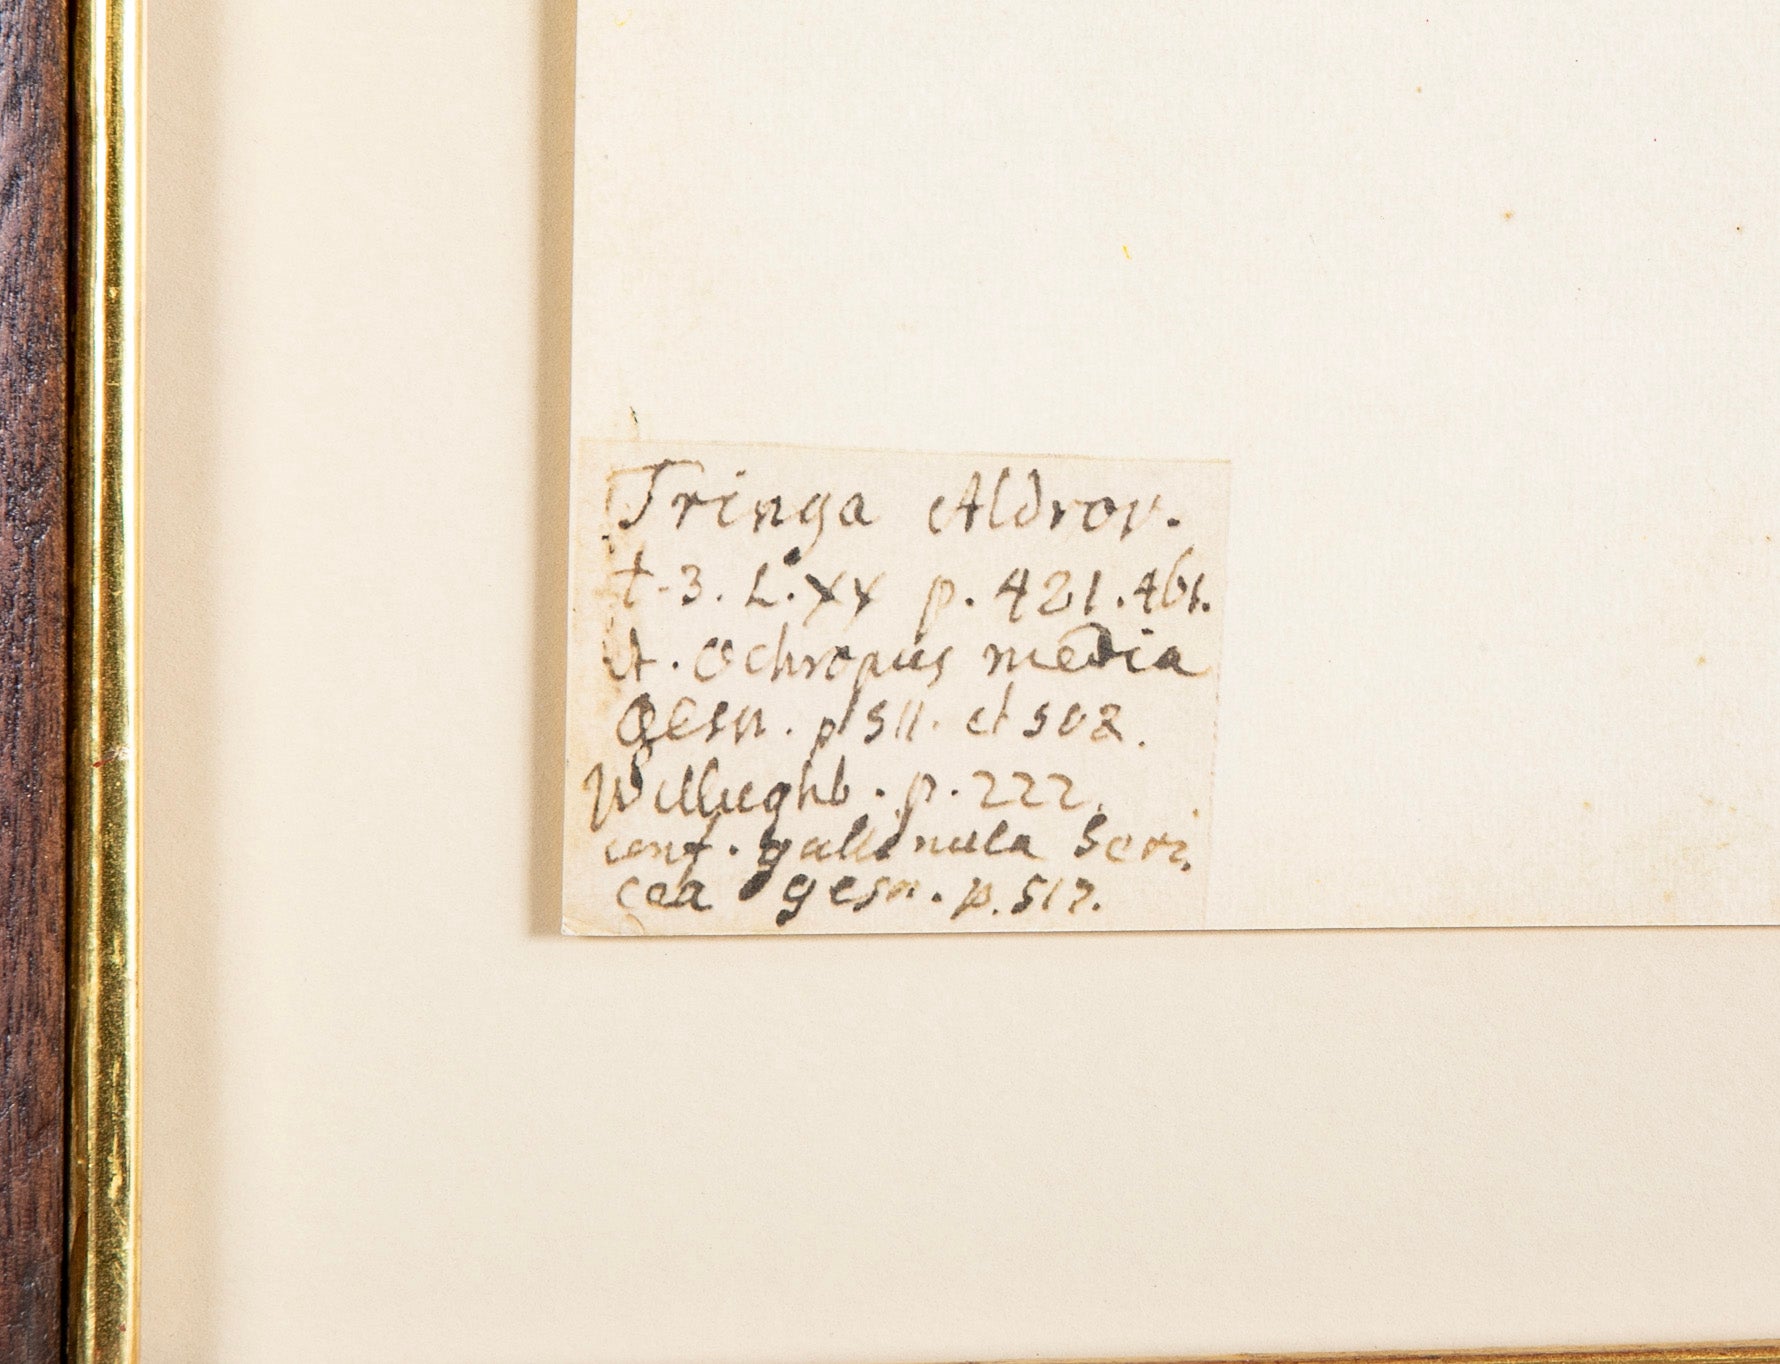 Tringa Aldrov.
t. 3. L. XX p. 421. 461.
A. Ochropus media
Gesn. p 511. et 502.
Willughb. p. 222.
conf. gallinula Seri,
cea gesn. p. 517.